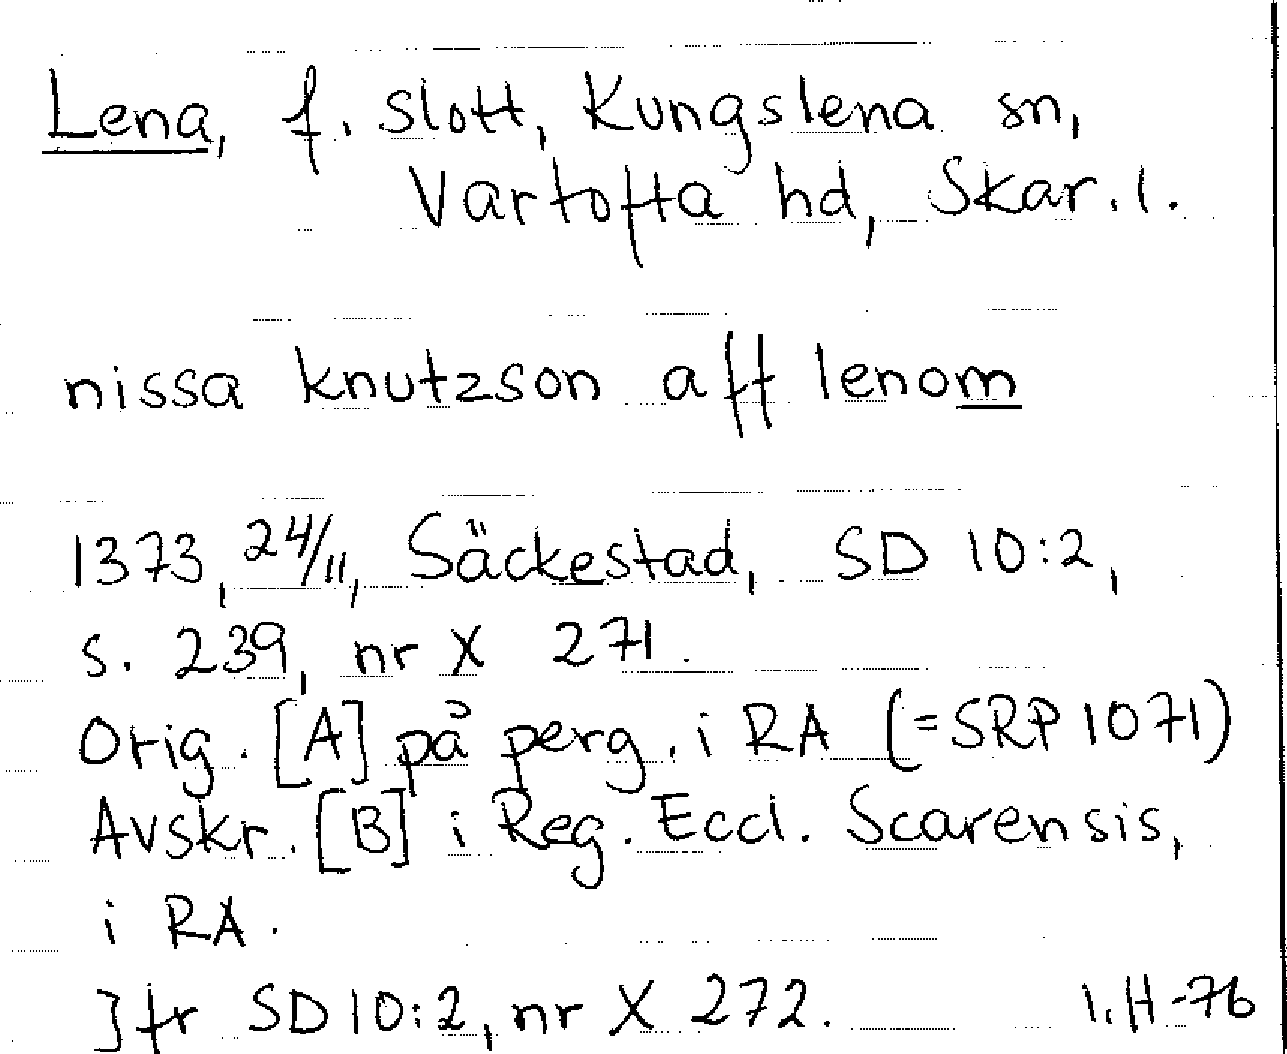 Lena, f. slott, Kungslena sn,
Vartofta hd, Skar. l.
nissa knutzson aff lenom
1373, 24/11, Säckestad, SD 10:2,
s. 239, nr X 271.
Orig. [A] på perg. i RA (=SRP 1071)
Avskr. [B] i Reg. Eccl. Scarensis,
i RA.
Jfr SD 10:2, nr X 272. I.H-76